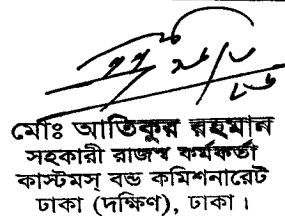 মোঃ আতিকুর রহমান
সহকারী রাজস্ব কর্মকর্তা
কাস্টমস্ বন্ড কমিশনারেট
ঢাকা (দক্ষিণ), ঢাকা।